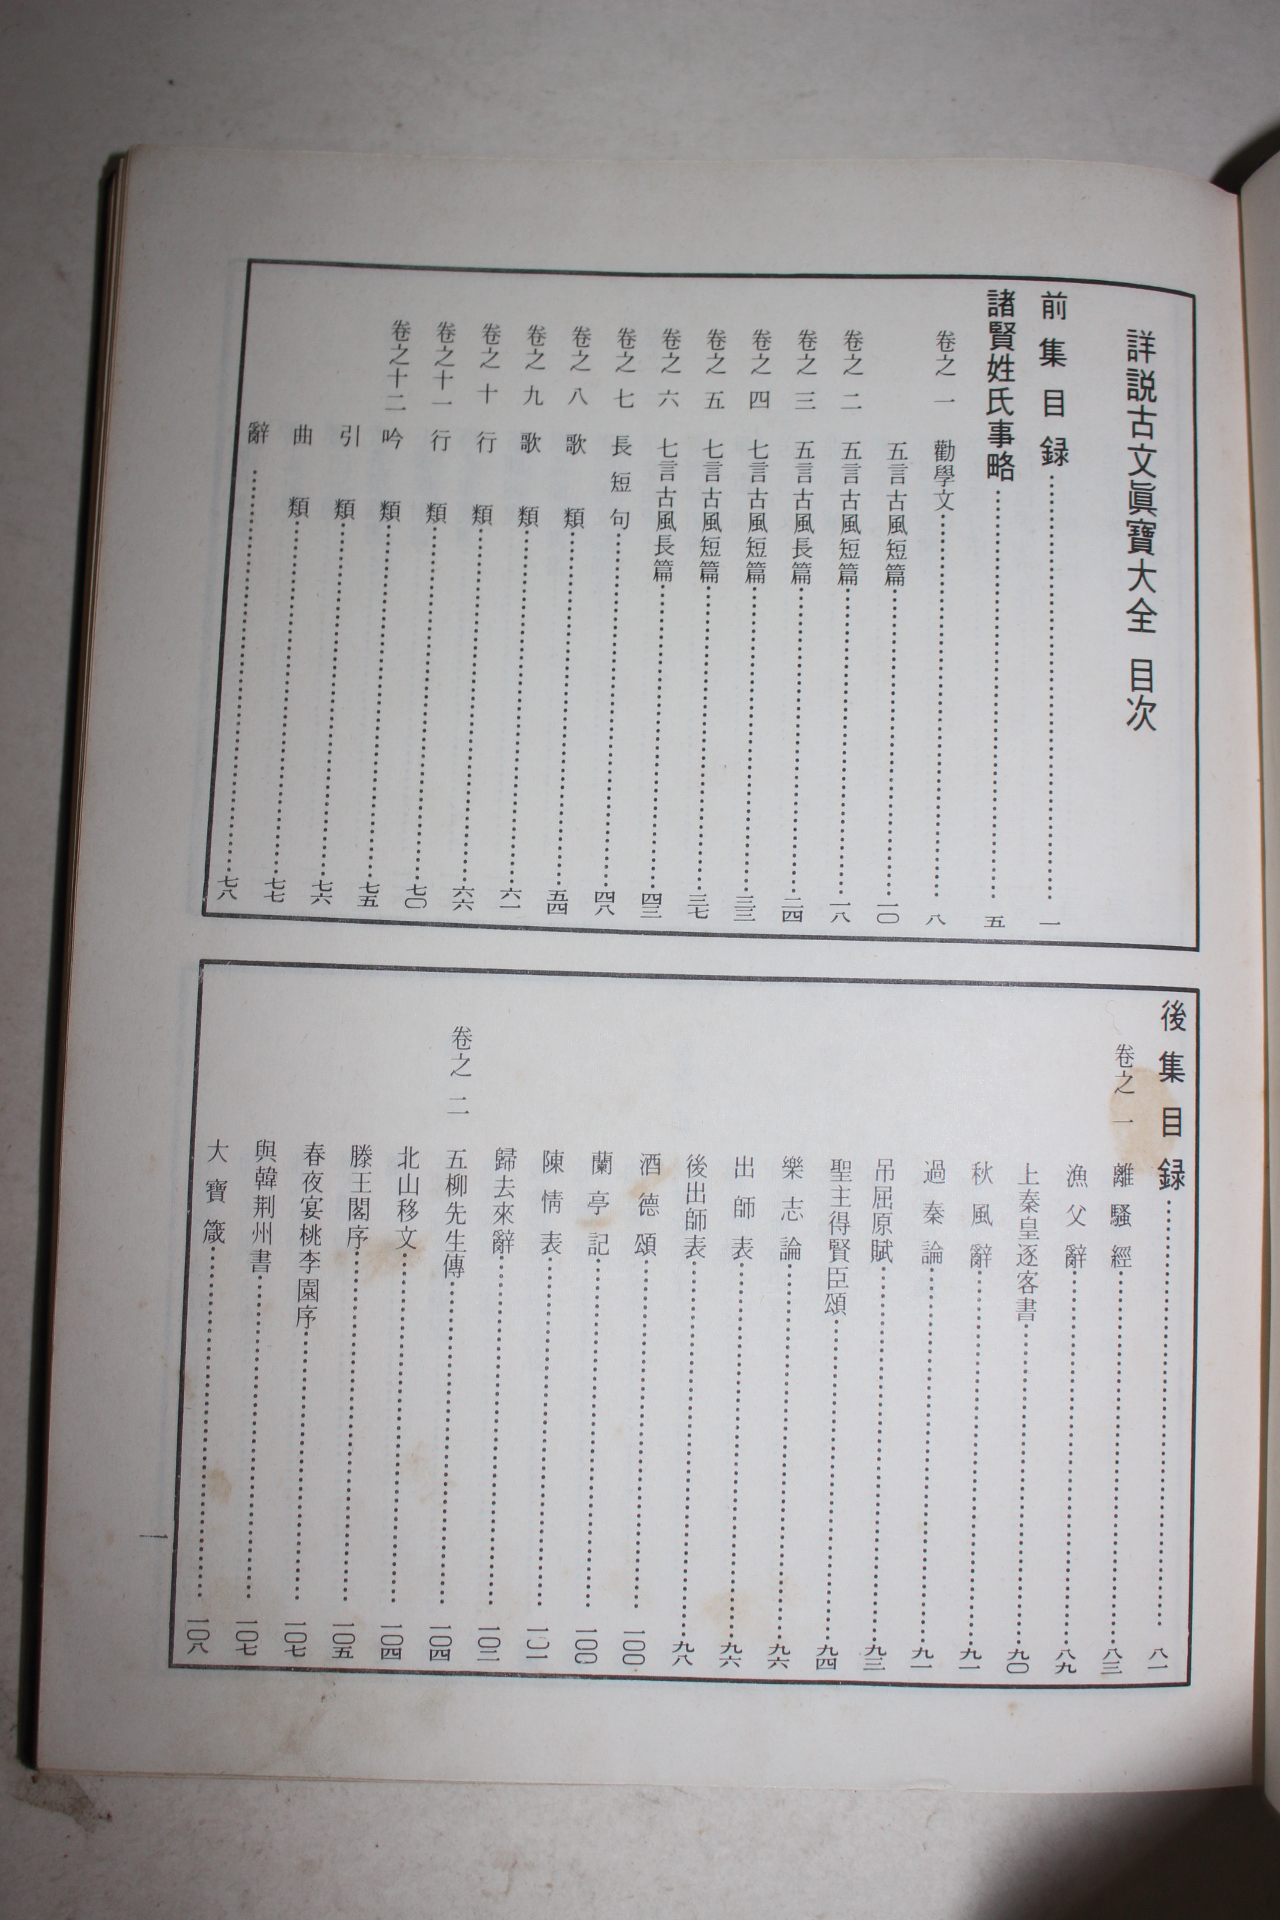 詳説古文眞寶大全 目次
前集目録 一
諸賢姓氏事略 五
卷之一 勸學文 八
五言古風短篇 一〇
卷之二 五言古風短篇 一八
卷之三 五言古風長篇 二四
卷之四 七言古風短篇 三三
卷之五 七言古風短篇 三七
卷之六 七言古風長篇 四三
卷之七 長短句 四八
卷之八 歌類 五四
卷之九 歌類 六一
卷之十 行類 六六
卷之十一 行類 七〇
卷之十二 吟類 七五
引類 七六
曲類 七七
辭 七八
後集目録 八一
卷之一 離騷經 八三
漁父辭 八九
上秦皇逐客書 九〇
秋風辭 九一
過秦論 九一
吊屈原賦 九三
聖主得賢臣頌 九四
樂志論 九六
出師表 九六
後出師表 九八
酒德頌 一〇〇
蘭亭記 一〇〇
陳情表 一〇一
歸去來辭 一〇二
卷之二 五柳先生傳 一〇四
北山移文 一〇四
滕王閣序 一〇五
春夜宴桃李園序 一〇七
與韓荆州書 一〇七
大寶箴 一〇八
一